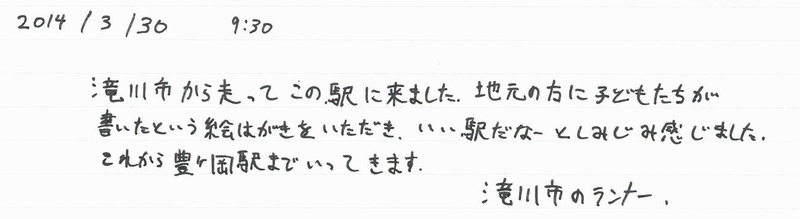 2014/3/30 9:30
滝川市から走ってこの駅に来ました。地元の方に子どもたちが
書いたという絵はがきをいただき、いい駅だなーとしみじみ感じました。
これから豊ヶ岡駅までいってきます。
滝川市のランナー。